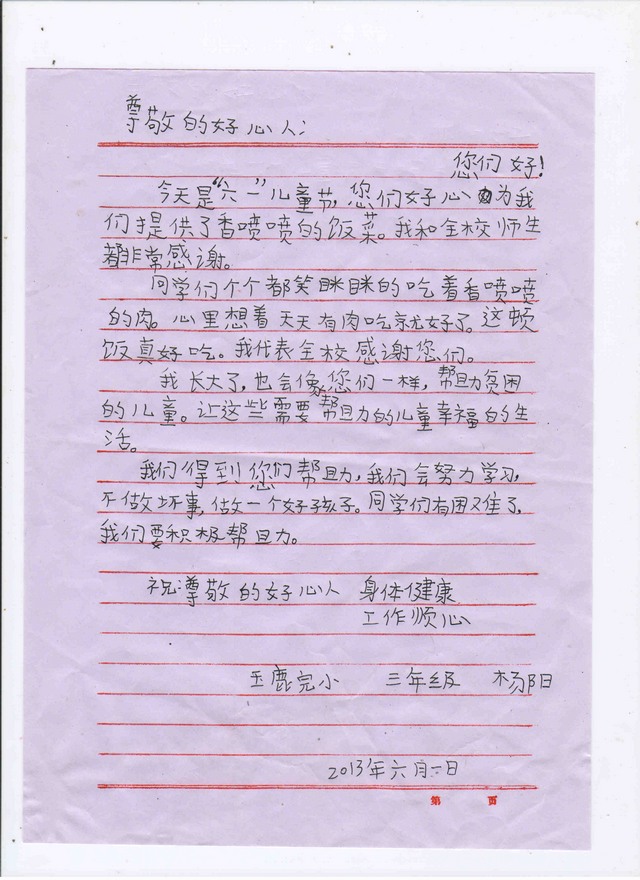 尊敬的好心人:
您们好!
今天是“六一”儿童节,您们好心为我
们提供了香喷喷的饭菜。我和全校师生
都非常感谢。
同学们个个都笑眯眯的吃着香喷喷
的肉。心里想着天天有肉吃就好了。这顿
饭真好吃。我代表全校感谢您们。
我长大了,也会像您们一样,帮助贫困
的儿童。让这些需要帮助的儿童幸福的生
活。
我们得到您们帮助,我们会努力学习,
不做坏事,做一个好孩子。同学们有困难了,
我们要积极帮助。
祝:尊敬的好心人 身体健康
工作顺心
玉鹿完小 三年级 杨阳
2013年六月一日
第 页